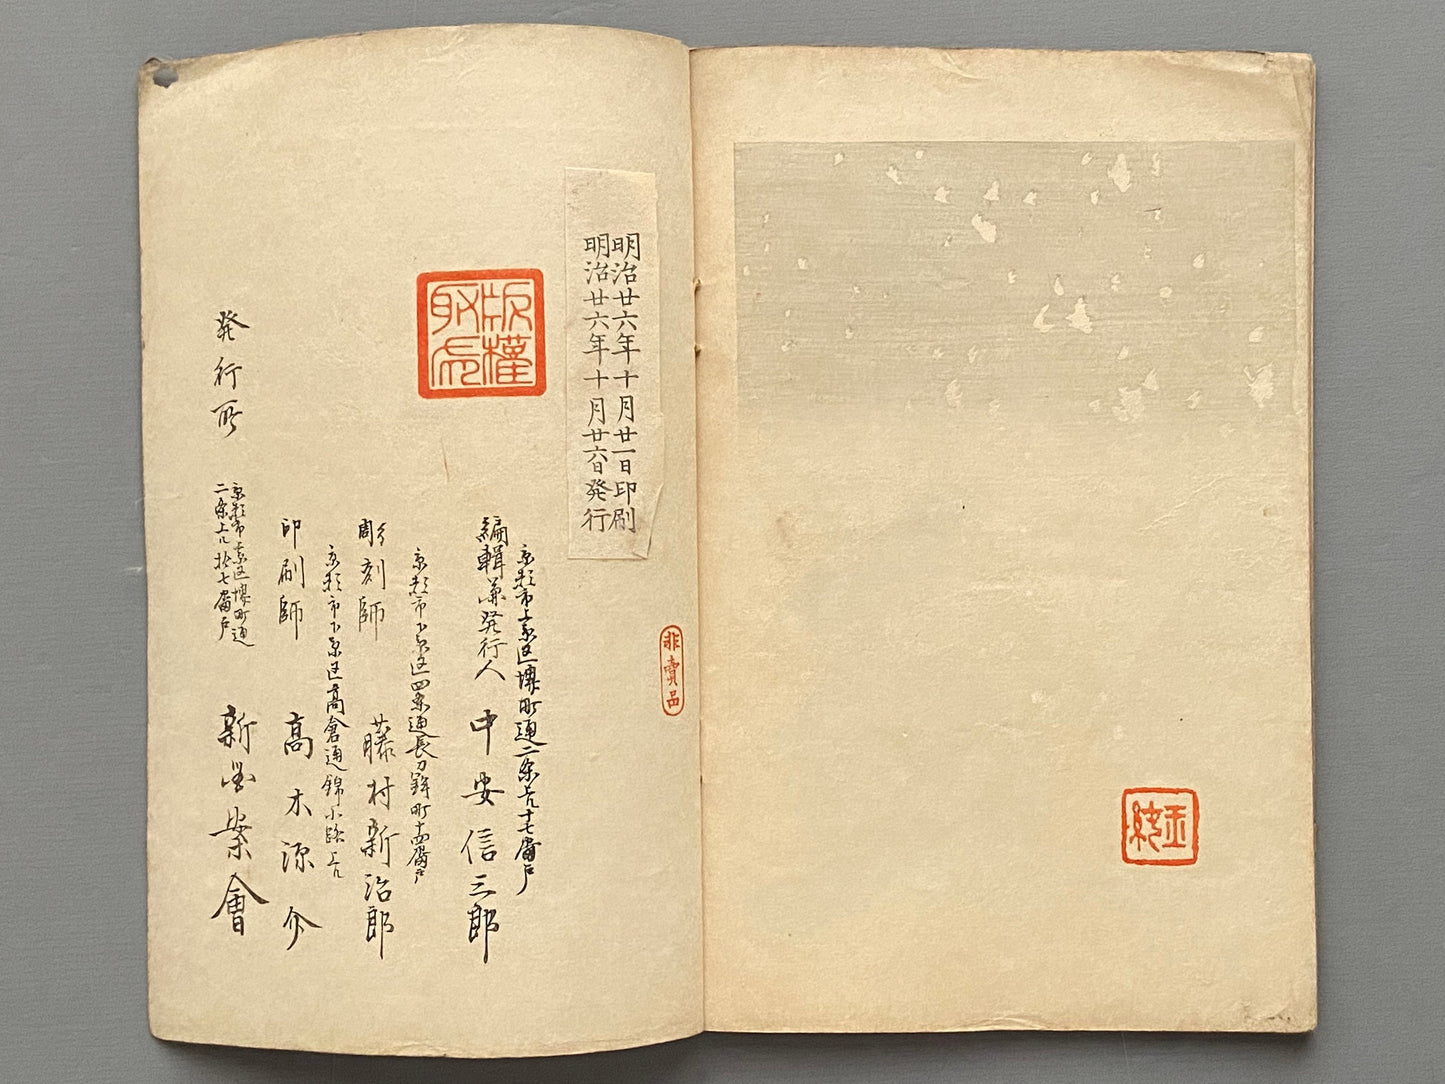 非賣品
明治廿六年十月廿一日印刷
明治廿六年十月廿六日発行
版權
京都市上京区堺町通二条上ル十七番戸
編輯兼発行人 中安信三郎
京都市下京区四条通長刀鉾町十四番戸
彫刻師 藤村新治郎
京都市下京区高倉通錦小路上ル
印刷師 高木源介
発行所
京都市上京区堺町通
二条上ル十七番戸
新図案會